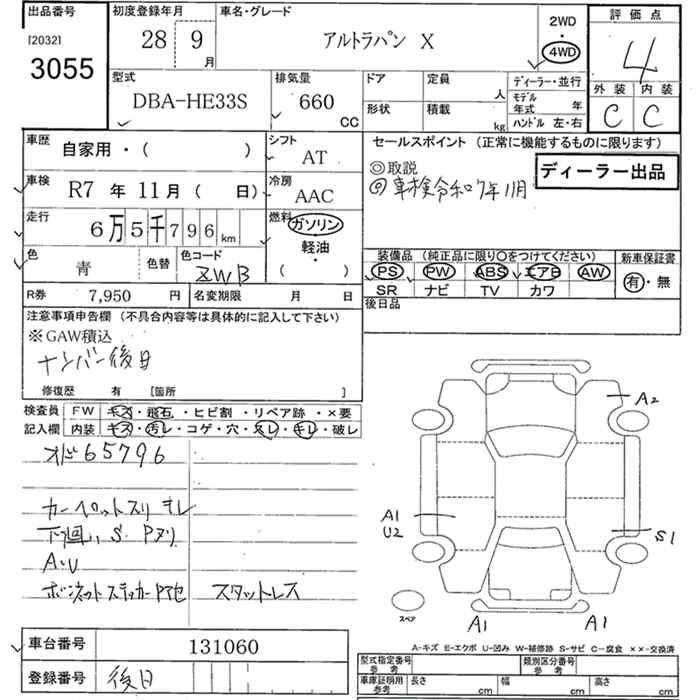 出品番号 初度登録年月 車名・グレード 2WD 評価点
[2032] 28 9月 アルトラパン X ・ 4
3055 4WD
型式 排気量 ドア 定員 人 ディーラー・並行 外装 内装
DBA-HE33S 660 CC 形状 積載 kg モデル年式 年 C C
ハンドル 左・右
車歴 自家用・( ) シフト AT セールスポイント (正常に機能するものに限ります)
◎取説 ディーラー出品
車検 R7 年 11 月 ( 日) 冷房 AAC ◎車検令和7年11月
走行 6万5千796km 燃料 ガソリン・軽油・( )
色 青 色替 色コード ZWB
装備品 (純正品に限り○をつけてください) 新車保証書
PS PW ABS エアB AW 有・無
SR ナビ TV カワ
R券 7,950 円 名変期限 月 日 後日品
注意事項申告欄 (不具合内容等は具体的に記入して下さい)
※GAW積込
ナンバー後日
修復歴 有 [箇所 ]
検査員 FW キズ・飛石・ヒビ割・リペア跡・×要
記入欄 内装 キズ・汚レ・コゲ・穴・スレ・キレ・破レ
オド65796
カーペットスリキレ
下回り, S. Pヌリ
A・U
ボンネットステッカーP色 スタットレス
A2
A1
U2
S1
スペア
A1 A1
車台番号 131060
登録番号 後日
A-キズ E-エクボ U-凹み W-補修跡 S-サビ C-腐食 ××-交換済
型式指定番号 参考 類別区分番号 参考
車庫証明用 参考 長さ cm 幅 cm 高さ cm